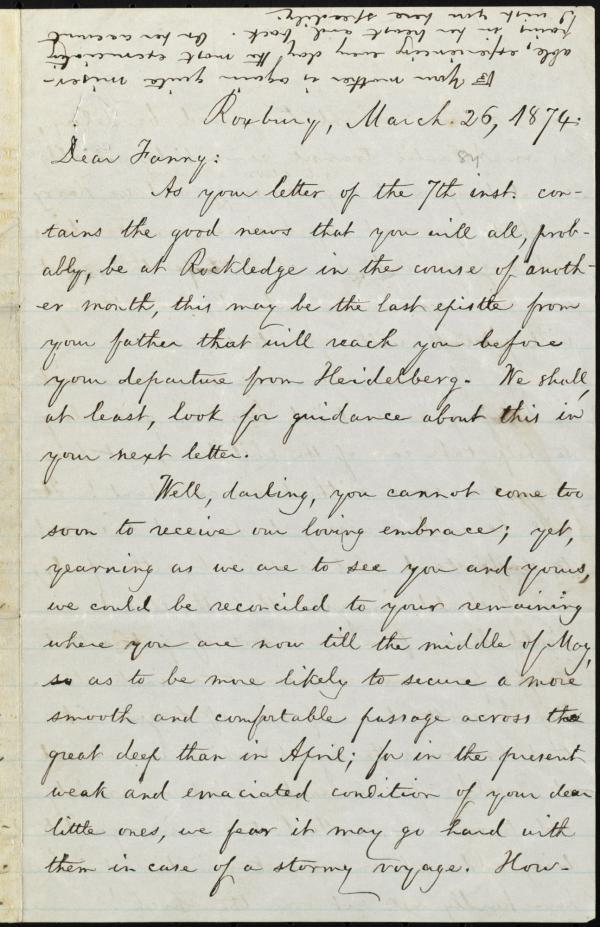 ☞ Your mother is again quite miser-
able, experiencing every day the most excruciating
pains in her breast and back. On her account
I wish you here speedily.
Roxbury, March 26, 1874.
Dear Fanny:
As your letter of the 7th inst. con-
tains the good news that you will all, prob-
ably, be at Rockledge in the course of anoth-
er month, this may be the last epistle from
your father that will reach you before
your departure from Heidelberg. We shall,
at least, look for guidance about this in
your next letter.
Well, darling, you cannot come too
soon to receive our loving embrace; yet,
yearning as we are to see you and yours,
we could be reconciled to your remaining
where you are now till the middle of May,
so as to be more likely to secure a more
smooth and comfortable passage across the
great deep than in April; for in the present
weak and emaciated condition of your dear
little ones, we fear it may go hard with
them in case of a stormy voyage. How-